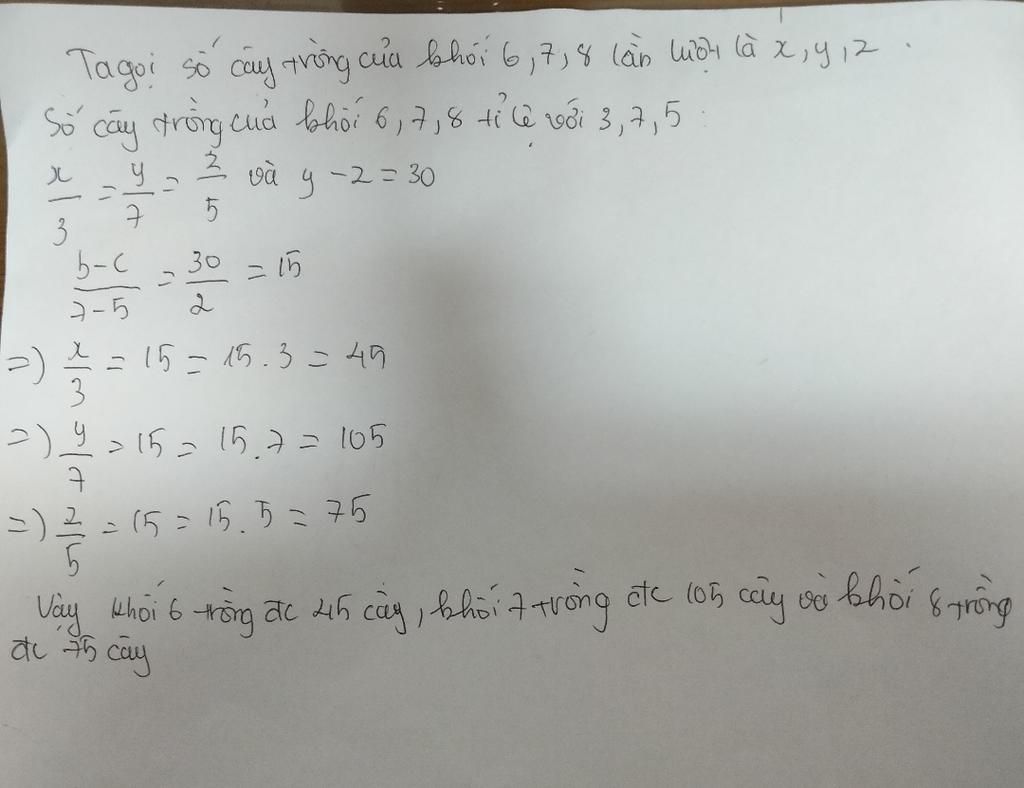 Ta gọi số cây trồng của khối 6, 7, 8 lần lượt là x, y, z.
Số cây trồng của khối 6, 7, 8 tỉ lệ với 3, 7, 5:
x/3 = y/7 = z/5 và y - z = 30
b-c/7-5 = 30/2 = 15
=) x/3 = 15 = 15.3 = 45
=) y/7 = 15 = 15.7 = 105
=) z/5 = 15 = 15.5 = 75
Vậy khối 6 trồng đc 45 cây, khối 7 trồng đc 105 cây và khối 8 trồng
đc 75 cây